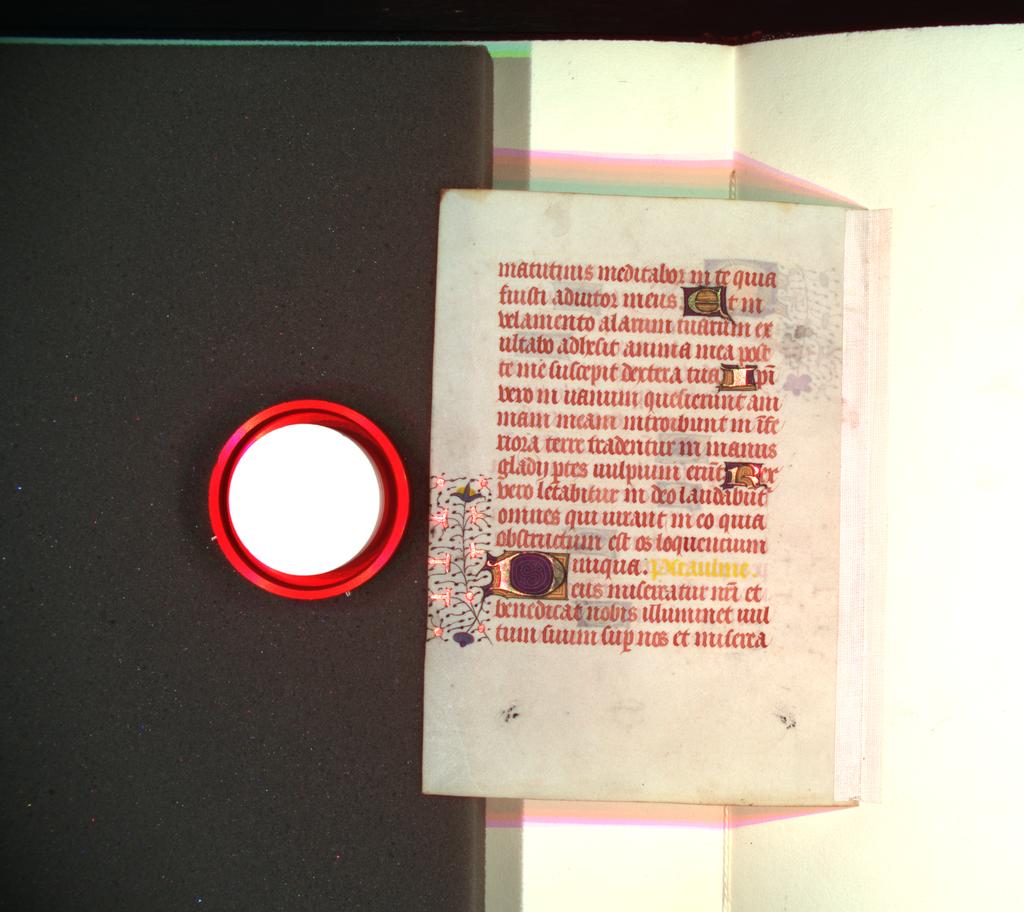 matutinis meditabor in te quia
fuisti adiutor meus. Et in
velamento alarum tuarum ex
ultabo adhesit anima mea post
te me suscepit dextera tua Ipi̅
vero in uanum quesierunt ani
mam meam introibunt in i̅fe
riora terre tradentur in manus
gladij ptes uulpium eru̅t Rex
vero letabitur in deo laudabu̅t̅
omnes qui iurant in eo quia
obstructum est os loquencium
iniqua. pseaulme.
Deus misereatur nr̅i et
benedicat nobis illuminet uul
tum suum sup nos et miserea